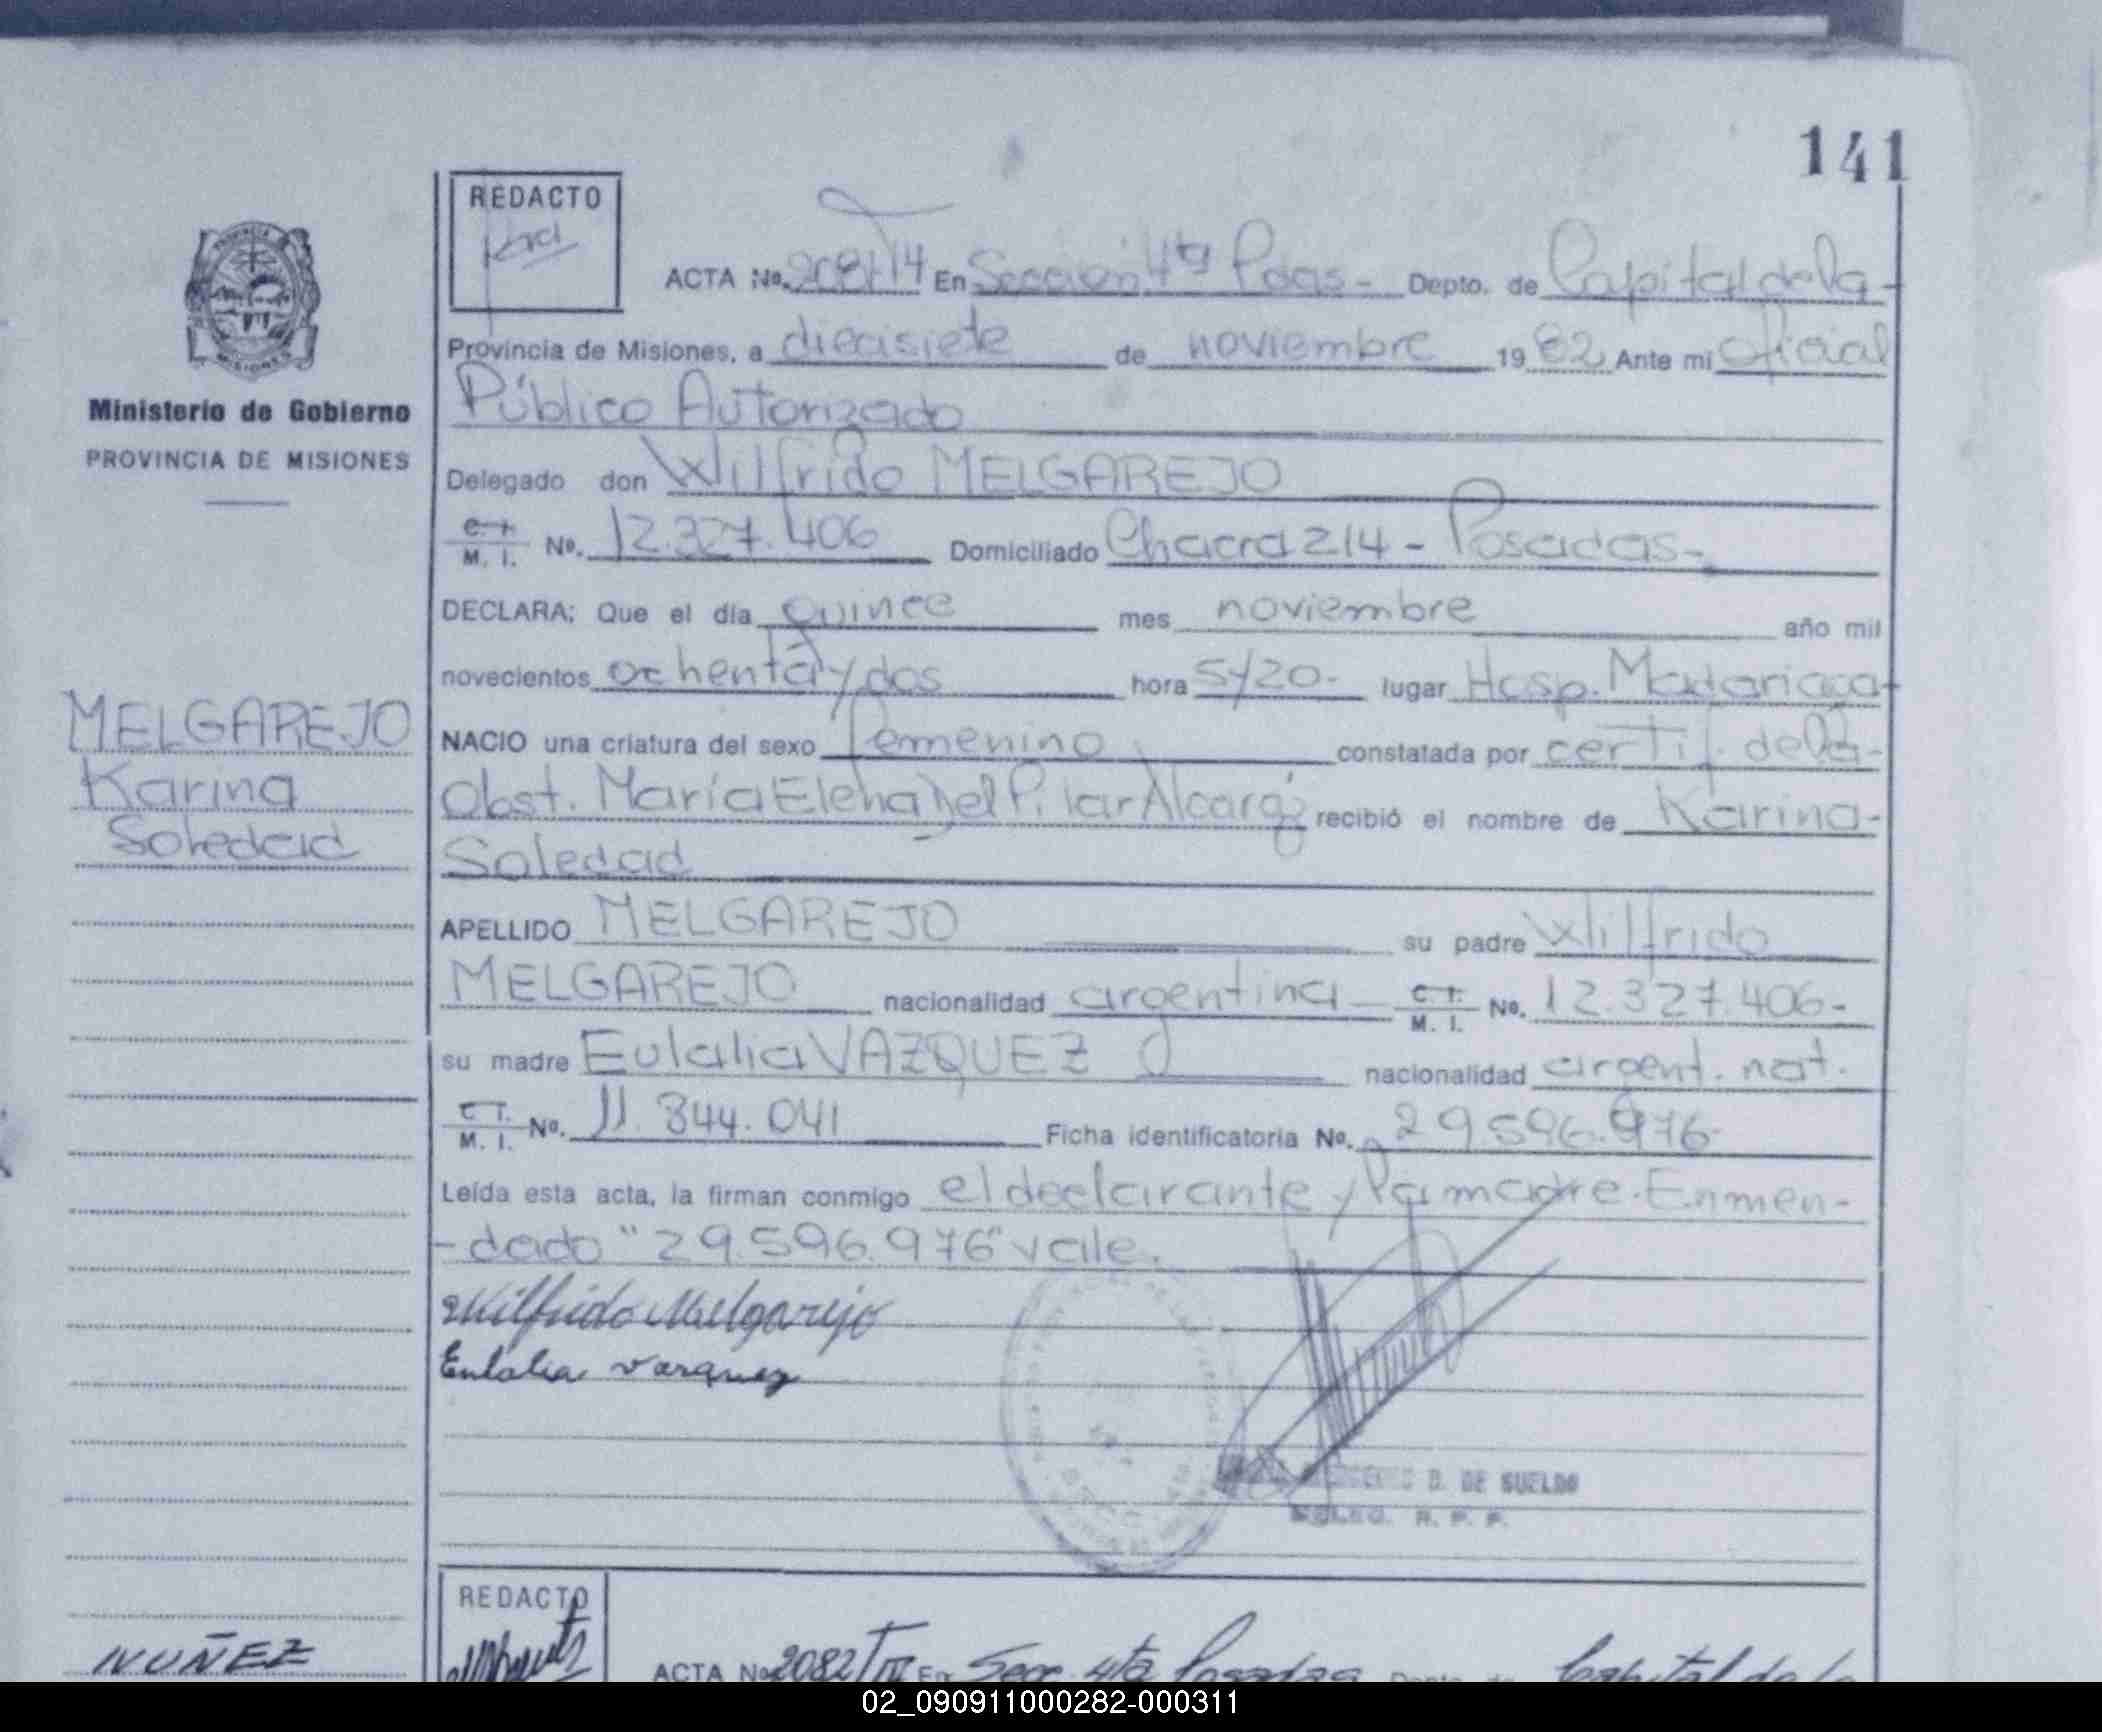 141
REDACTO
ACTA No. En Sección 4ta Pdas- Depto. de Capital de la-
Provincia de Misiones, a diecisiete de noviembre 1982 Ante mi Oficial
Público Autorizado
Ministerio de Gobierno
PROVINCIA DE MISIONES
Delegado don Wilfrido MELGAREJO
C. I. M. I. No. 12.327.406 Domiciliado Chacra 214 - Posadas-
DECLARA: Que el día quince mes noviembre año mil
novecientos ochenta y dos hora 5y20- lugar Hosp. Madariaga-
NACIO una criatura del sexo femenino constatada por certif. de la-
Obst. María Elena Del Pilar Alcaráz recibió el nombre de Karina-
Soledad
MELGAREJO
Karina
Soledad
APELLIDO MELGAREJO su padre Wilfrido
MELGAREJO nacionalidad argentina - C. I. M. I. No. 12.327.406-
su madre Eulalia VAZQUEZ nacionalidad argent. nat.
C. I. M. I. No. 11.844.041 Ficha identificatoria No. 29.596.976-
Leída esta acta, la firman conmigo el declarante y la madre. Enmen-
-dado "29.596.976" vale.
Wilfrido Melgarejo
Eulalia Vazquez
D. DE SUELDO
R. P. P.
REDACTO
NUÑEZ
ACTA No 2082/TIV En Secc. 4ta Posadas Depto. de Capital de la
02_090911000282-000311